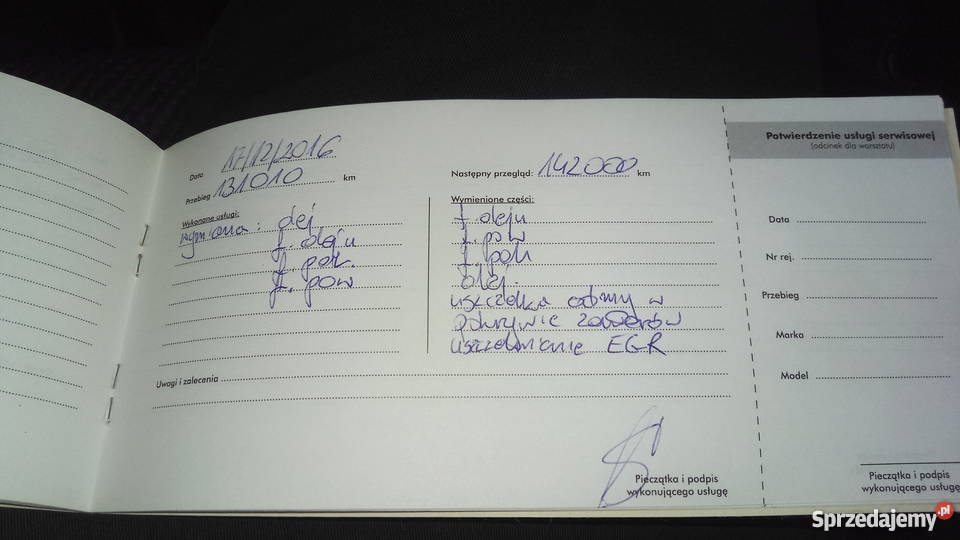 Data 17/12/2016
Przebieg 131010 km
Następny przegląd: 142000 km
Wykonane usługi:
wymiana: olej
f. oleju
f. pal.
f. pow
Wymienione części:
f. oleju
f. pow
f. pali
olej.
uszczelka odmy w
pokrywie zaworów
uszczelnienie EGR
Uwagi i zalecenia
Pieczątka i podpis
wykonującego usługę
Potwierdzenie usługi serwisowej
(odcinek dla warsztatu)
Data
Nr rej.
Przebieg
Marka
Model
Pieczątka i podpis
wykonującego usługę
Sprzedajemy.pl